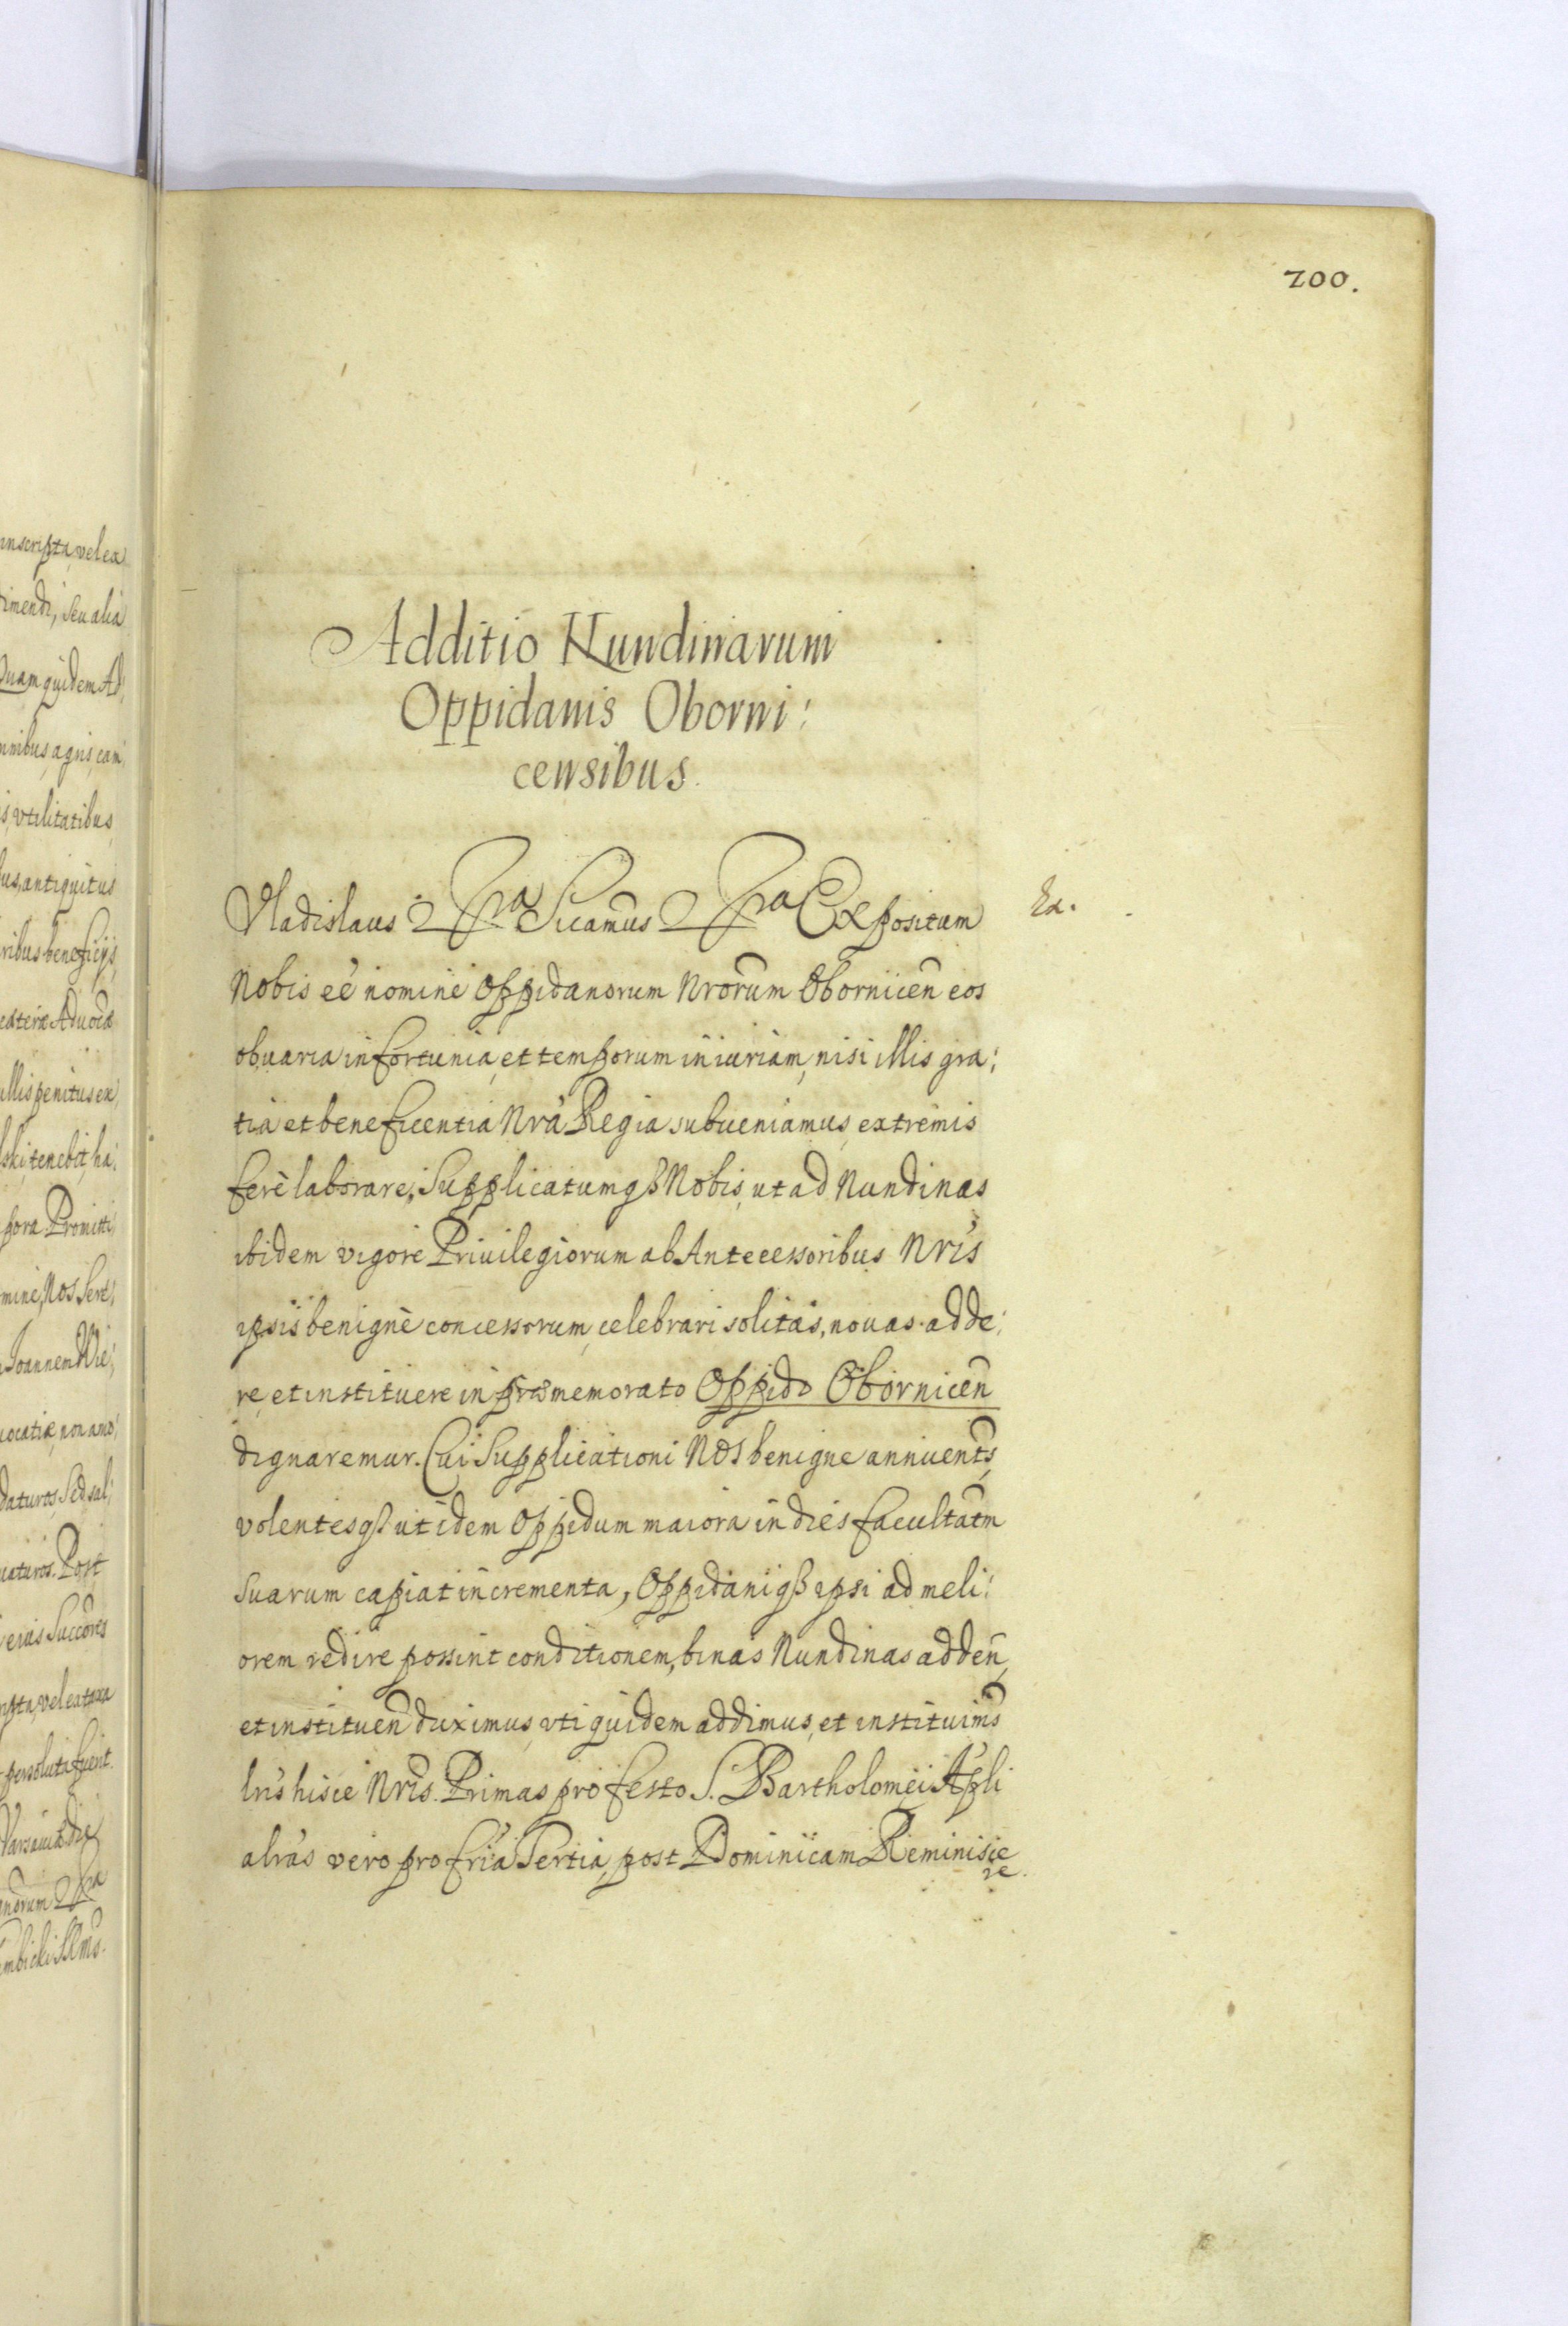 200.
Additio Nundinarum
Oppidanis Oborni:
censibus.
Vladislaus 2 Pra Sicamus 2 Pra Expositum
Ex.
Nobis eē nomine Oppidanorum Nrorum Obornicen̄ eos
ob varia infortunia, et temporum iniuriam, nisi illis gra:
tia et beneficentia Nra Regia subueniamus, extremis
ferè laborare, Supplicatumqß Nobis, ut ad Nundinas
ibidem vigore Priuilegiorum ab Antecessoribus Nris
ipsis benignè concessorum, celebrari solitas, nouas adde:
re, et instituere in præmemorato Oppido Obornicen̄
dignaremur. Cui Supplicationi Nos benigne annuents,
volentesqß ut idem Oppidum maiora in dies facultatm
suarum capiat incrementa, Oppidaniqß ipsi ad meli:
orem redire possint conditionem, binas Nundinas adden̄,
et instituen̄ duximus, vti quidem addimus, et instituims
lris hisce Nris. Primas pro festo S. Bartholomęi Apli
alras vero pro fria Tertia, post Dominicam Reminisce
re.
inscripta, vel ex
imendi, seu alia
Quam quidem Ad:
omnibus, agris, cam
is, vtilitatibus,
us, antiquitus
ribus beneficijs,
Aduocã
illis penitus ex
ski tenebit, ha:
pora. Promitti:
mine, Nos Sert:
Joannem Wie:
uocatiæ, non amo:
daturos, Sed sal:
uaturos. Post
eius Succõres
vel extaxa
persoluta fuerit.
Varsauiæ die
gnorum 2 Pra
embicki SRMs.